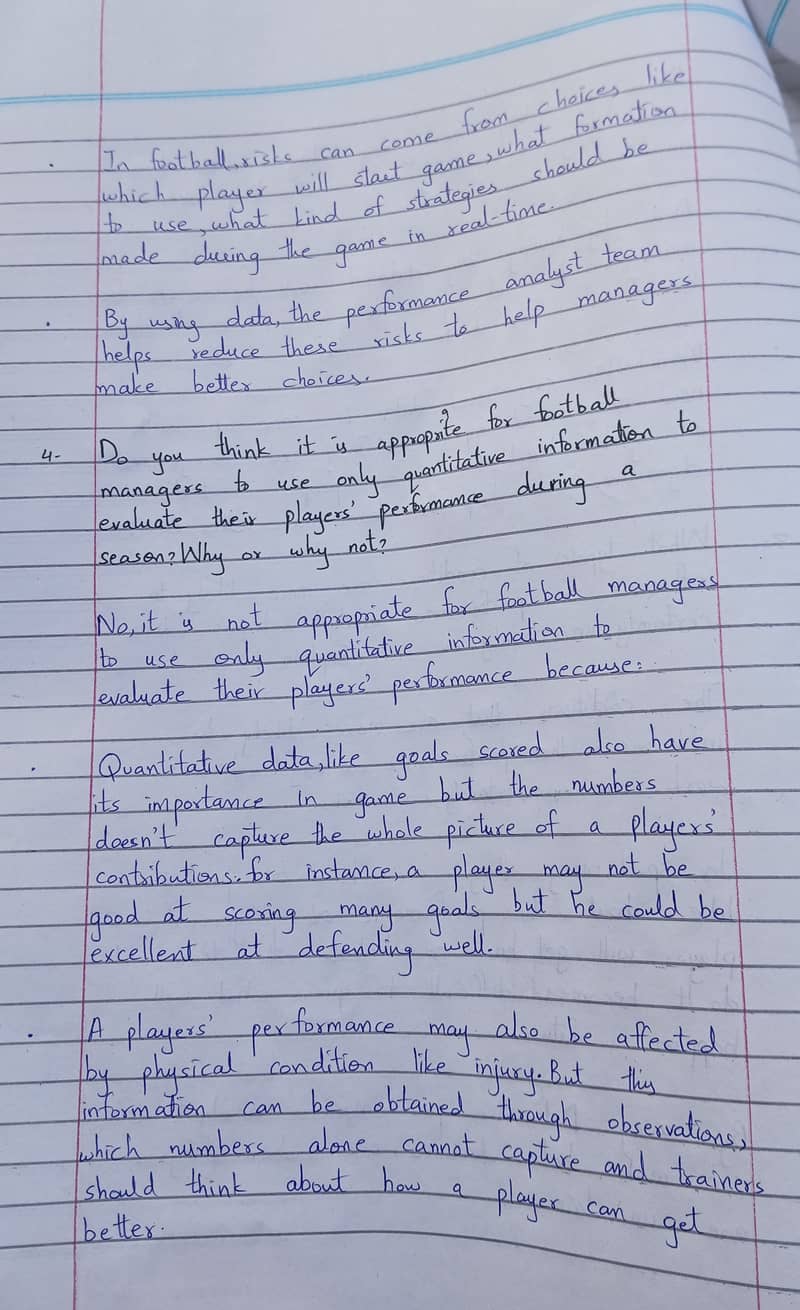 . In football, risks can come from choices like
which player will start game, what formation
to use, what kind of strategies should be
made during the game in real-time.
. By using data, the performance analyst team
helps reduce these risks to help managers
make better choices.
4- Do you think it is appropriate for football
managers to use only quantitative information to
evaluate their players' performance during a
season? Why or why not?
No, it is not appropriate for football managers
to use only quantitative information to
evaluate their players' performance because:
. Quantitative data, like goals scored also have
its importance in game but the numbers
doesn't capture the whole picture of a players'
contributions. for instance, a player may not be
good at scoring many goals but he could be
excellent at defending well.
. A players' performance may also be affected
by physical condition like injury. But this
information can be obtained through observations,
which numbers alone cannot capture and trainers
should think about how a player can get
better.